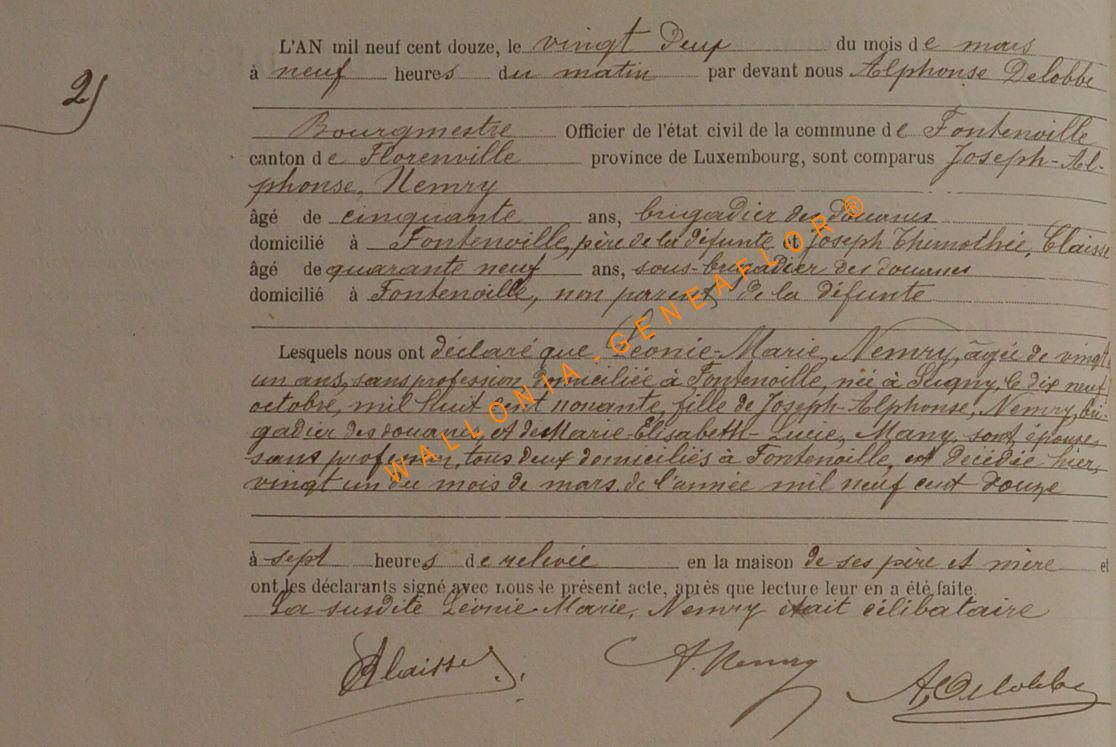 L'AN mil neuf cent douze, le vingt deux du mois de mars
2)
à neuf heures du matin par devant nous Alphonse Delobbe
Bourgmestre Officier de l'état civil de la commune de Fontenoille
canton de Florenville province de Luxembourg, sont comparus Joseph-Al-
phonse, Nemry
âgé de cinquante ans, brigadier des douanes
domicilié à Fontenoille, père de la défunte et Joseph Thimothée, Claisse
âgé de quarante neuf ans, sous-brigadier des douanes
domicilié à Fontenoille, non parent de la défunte
Lesquels nous ont déclaré que Léonie-Marie, Nemry, âgée de vingt
un ans, sans profession, domiciliée à Fontenoille, née à Sugny, le dix neuf
octobre, mil huit cent nonante, fille de Joseph-Alphonse, Nemry, bri-
gadier des douanes, et de Marie-Elisabeth-Lucie, Many, son épouse,
sans profession, tous deux domiciliés à Fontenoille, est décédée hier,
vingt un du mois de mars de l'année mil neuf cent douze
à sept heures de relevée en la maison de ses père et mère et
ont les déclarants signé avec nous le présent acte, après que lecture leur en a été faite.
La susdite Léonie-Marie, Nemry était célibataire
Claisse A. Nemry A. Delobbe
WALLONIA-GENEAFLOR®